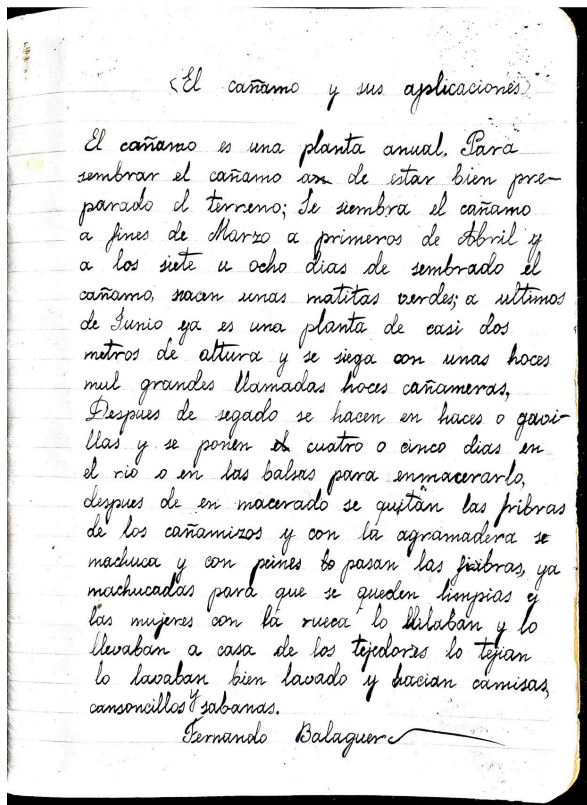 <El cañamo y sus aplicaciones>
El cañamo es una planta anual. Para
sembrar el cañamo an de estar bien pre-
parado el terreno; Se siembra el cañamo
a fines de Marzo a primeros de Abril y
a los siete u ocho dias de sembrado el
cañamo, nacen unas matitas verdes; a ultimos
de Junio ya es una planta de casi dos
metros de altura y se siega con unas hoces
mul grandes llamadas hoces cañameras,
Despues de segado se hacen en haces o gavi-
llas y se ponen cuatro o cinco dias en
el rio o en las balsas para enmacerarlo,
despues de en macerado se quitan las fribras
de los cañamizos y con la agramadera se
machuca y con peines to pasan las fribras, ya
machucadas para que se queden limpias y
las mujeres con la rueca lo hilaban y lo
llevaban a casa de los tejedores lo tejian
lo lavaban bien lavado y hacian camisas,
cansoncillos y sabanas.
Fernando Balaguer